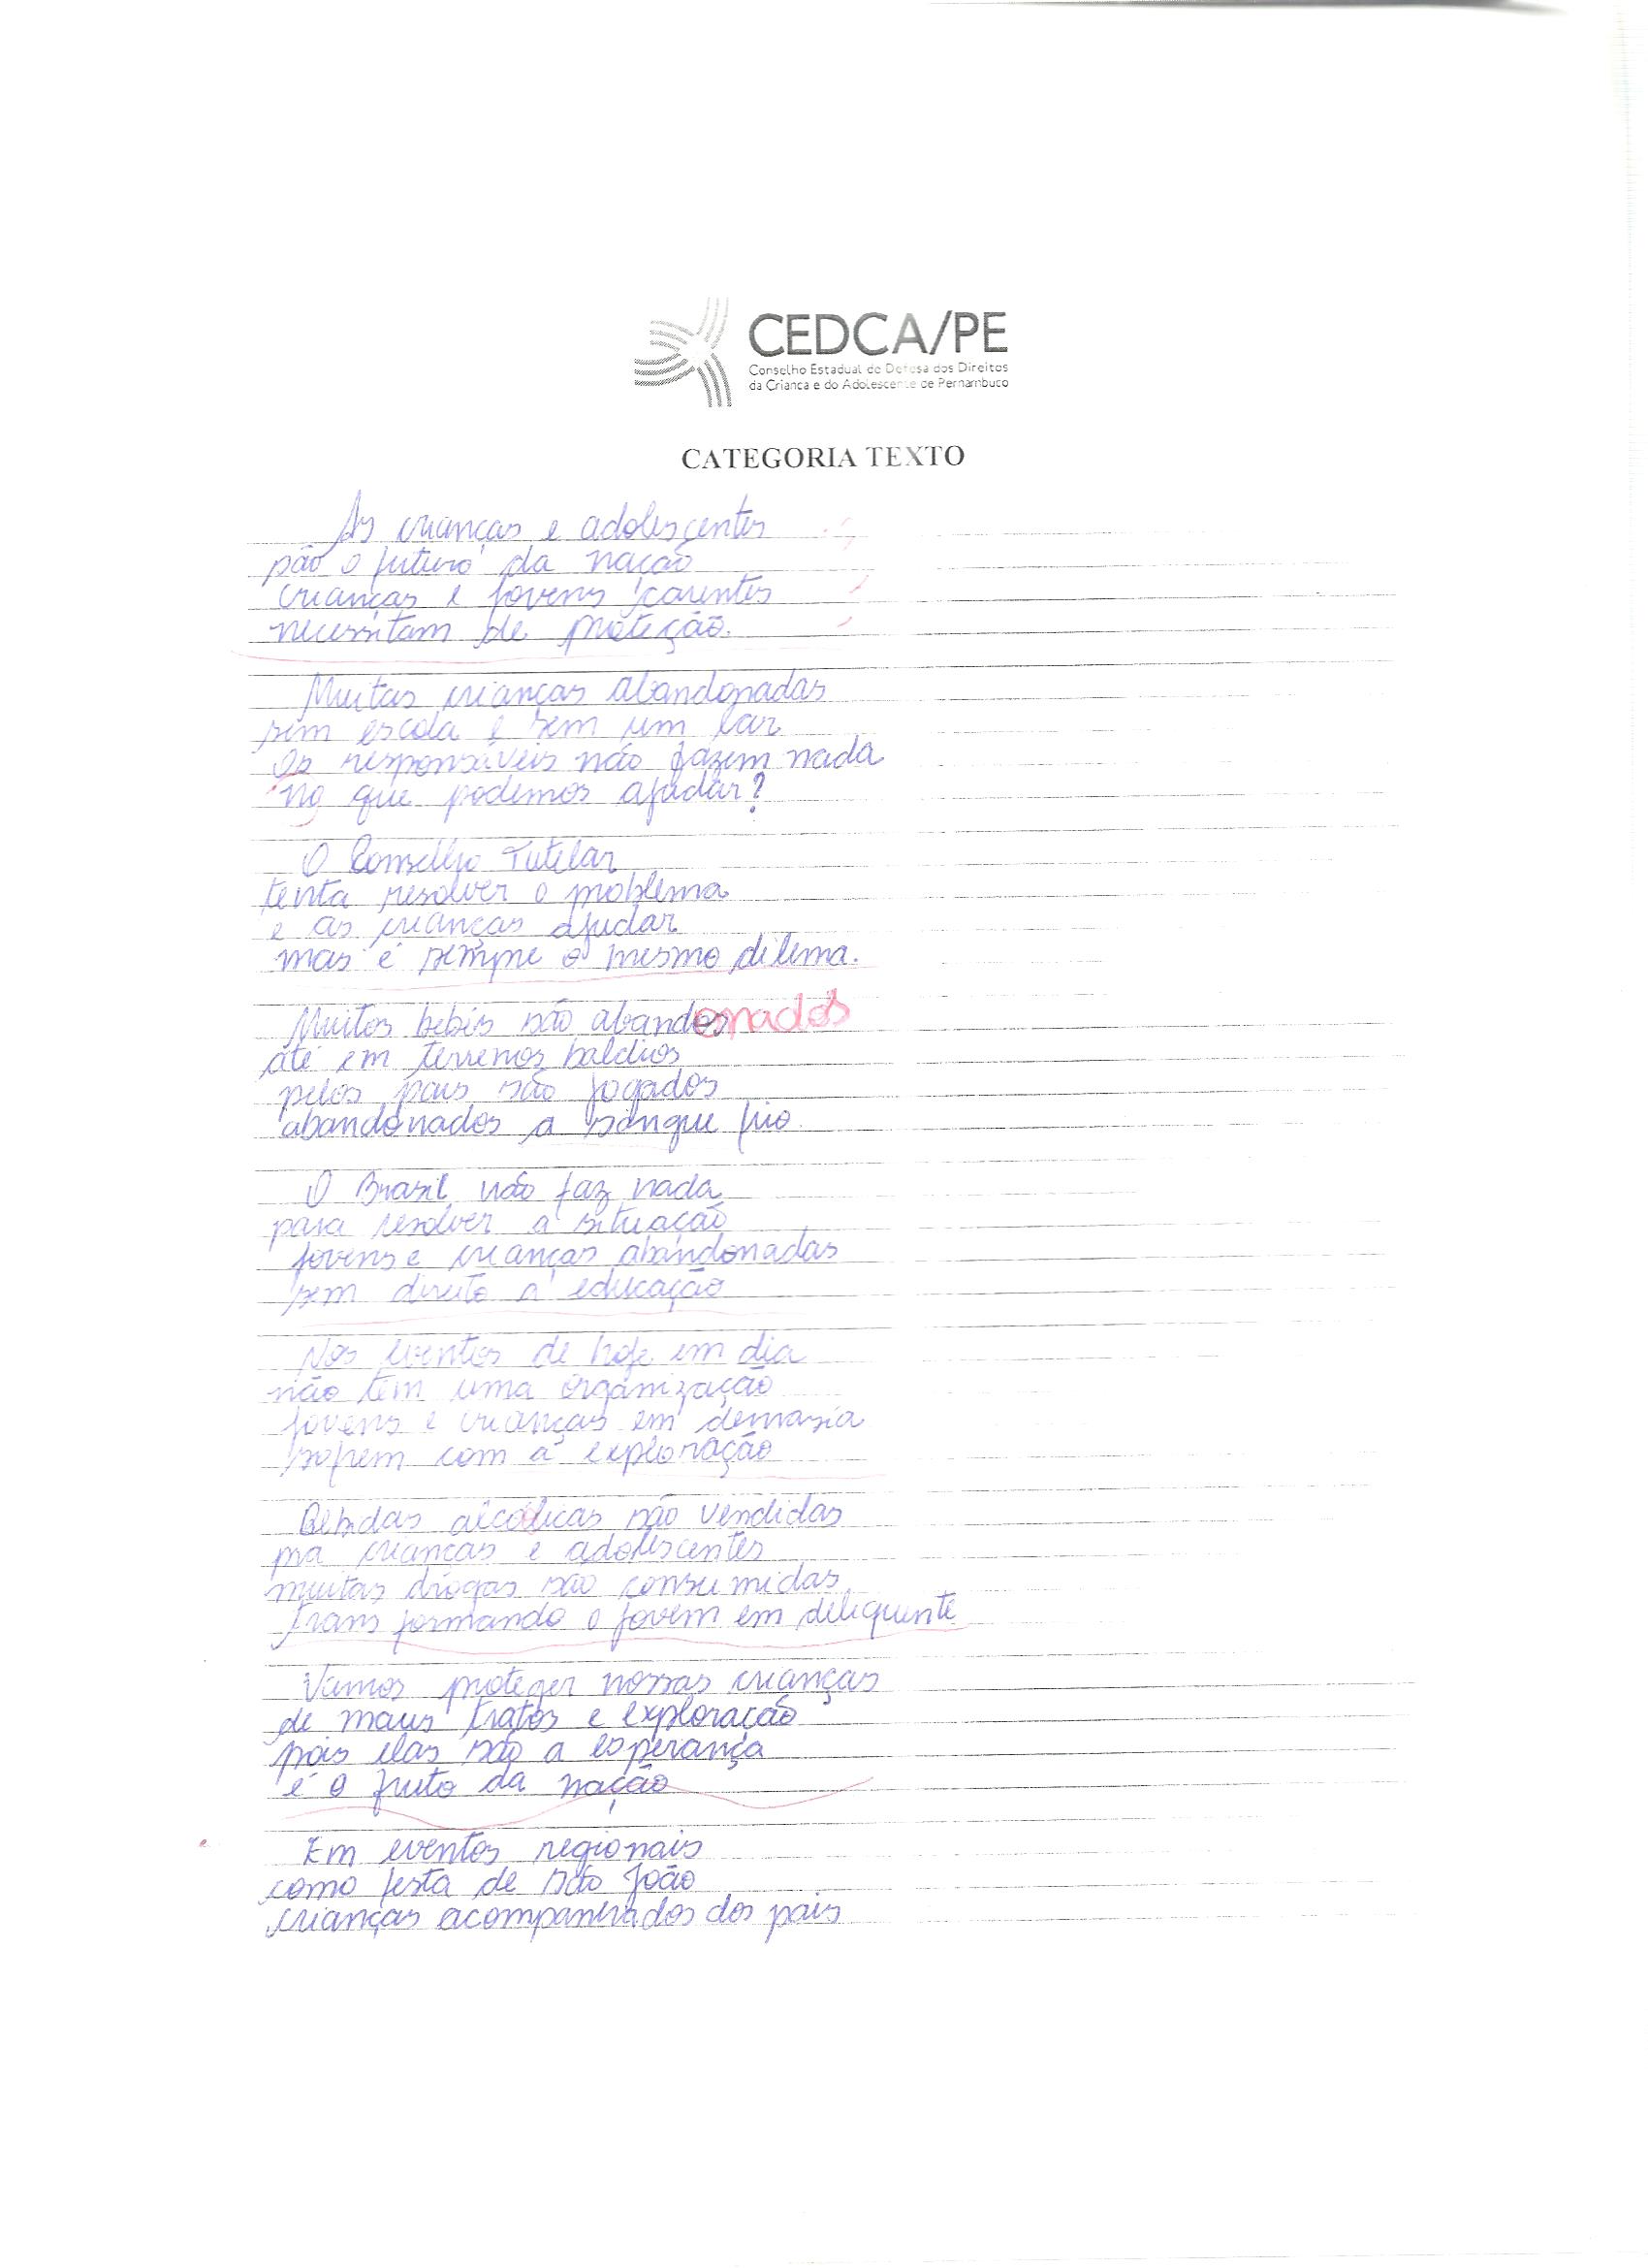 CEDCA/PE
Conselho Estadual de Defesa dos Direitos
da Criança e do Adolescente de Pernambuco
CATEGORIA TEXTO
As crianças e adolescentes
são o futuro da nação
crianças e jovens carentes
necessitam de proteção.
Muitas crianças abandonadas
sem escola e sem um lar
Os responsáveis não fazem nada
no que podemos ajudar?
O Conselho Tutelar
tenta resolver o problema
e as crianças ajudar
mas é sempre o mesmo dilema.
Muitos bebês são abandonados
até em terrenos baldios
pelos pais são jogados
abandonados a sangue frio.
O Brasil não faz nada
para resolver a situação
jovens e crianças abandonadas
sem direito a educação
Nos eventos de hoje em dia
não tem uma organização
jovens e crianças em demasia
sofrem com a exploração
Bebidas alcoólicas são vendidas
pra crianças e adolescentes
muitas drogas são consumidas
transformando o jovem em deliquente
Vamos proteger nossas crianças
de maus tratos e exploração
pois elas são a esperança
é o fruto da nação
Em eventos regionais
como festa de são João
crianças acompanhados dos pais